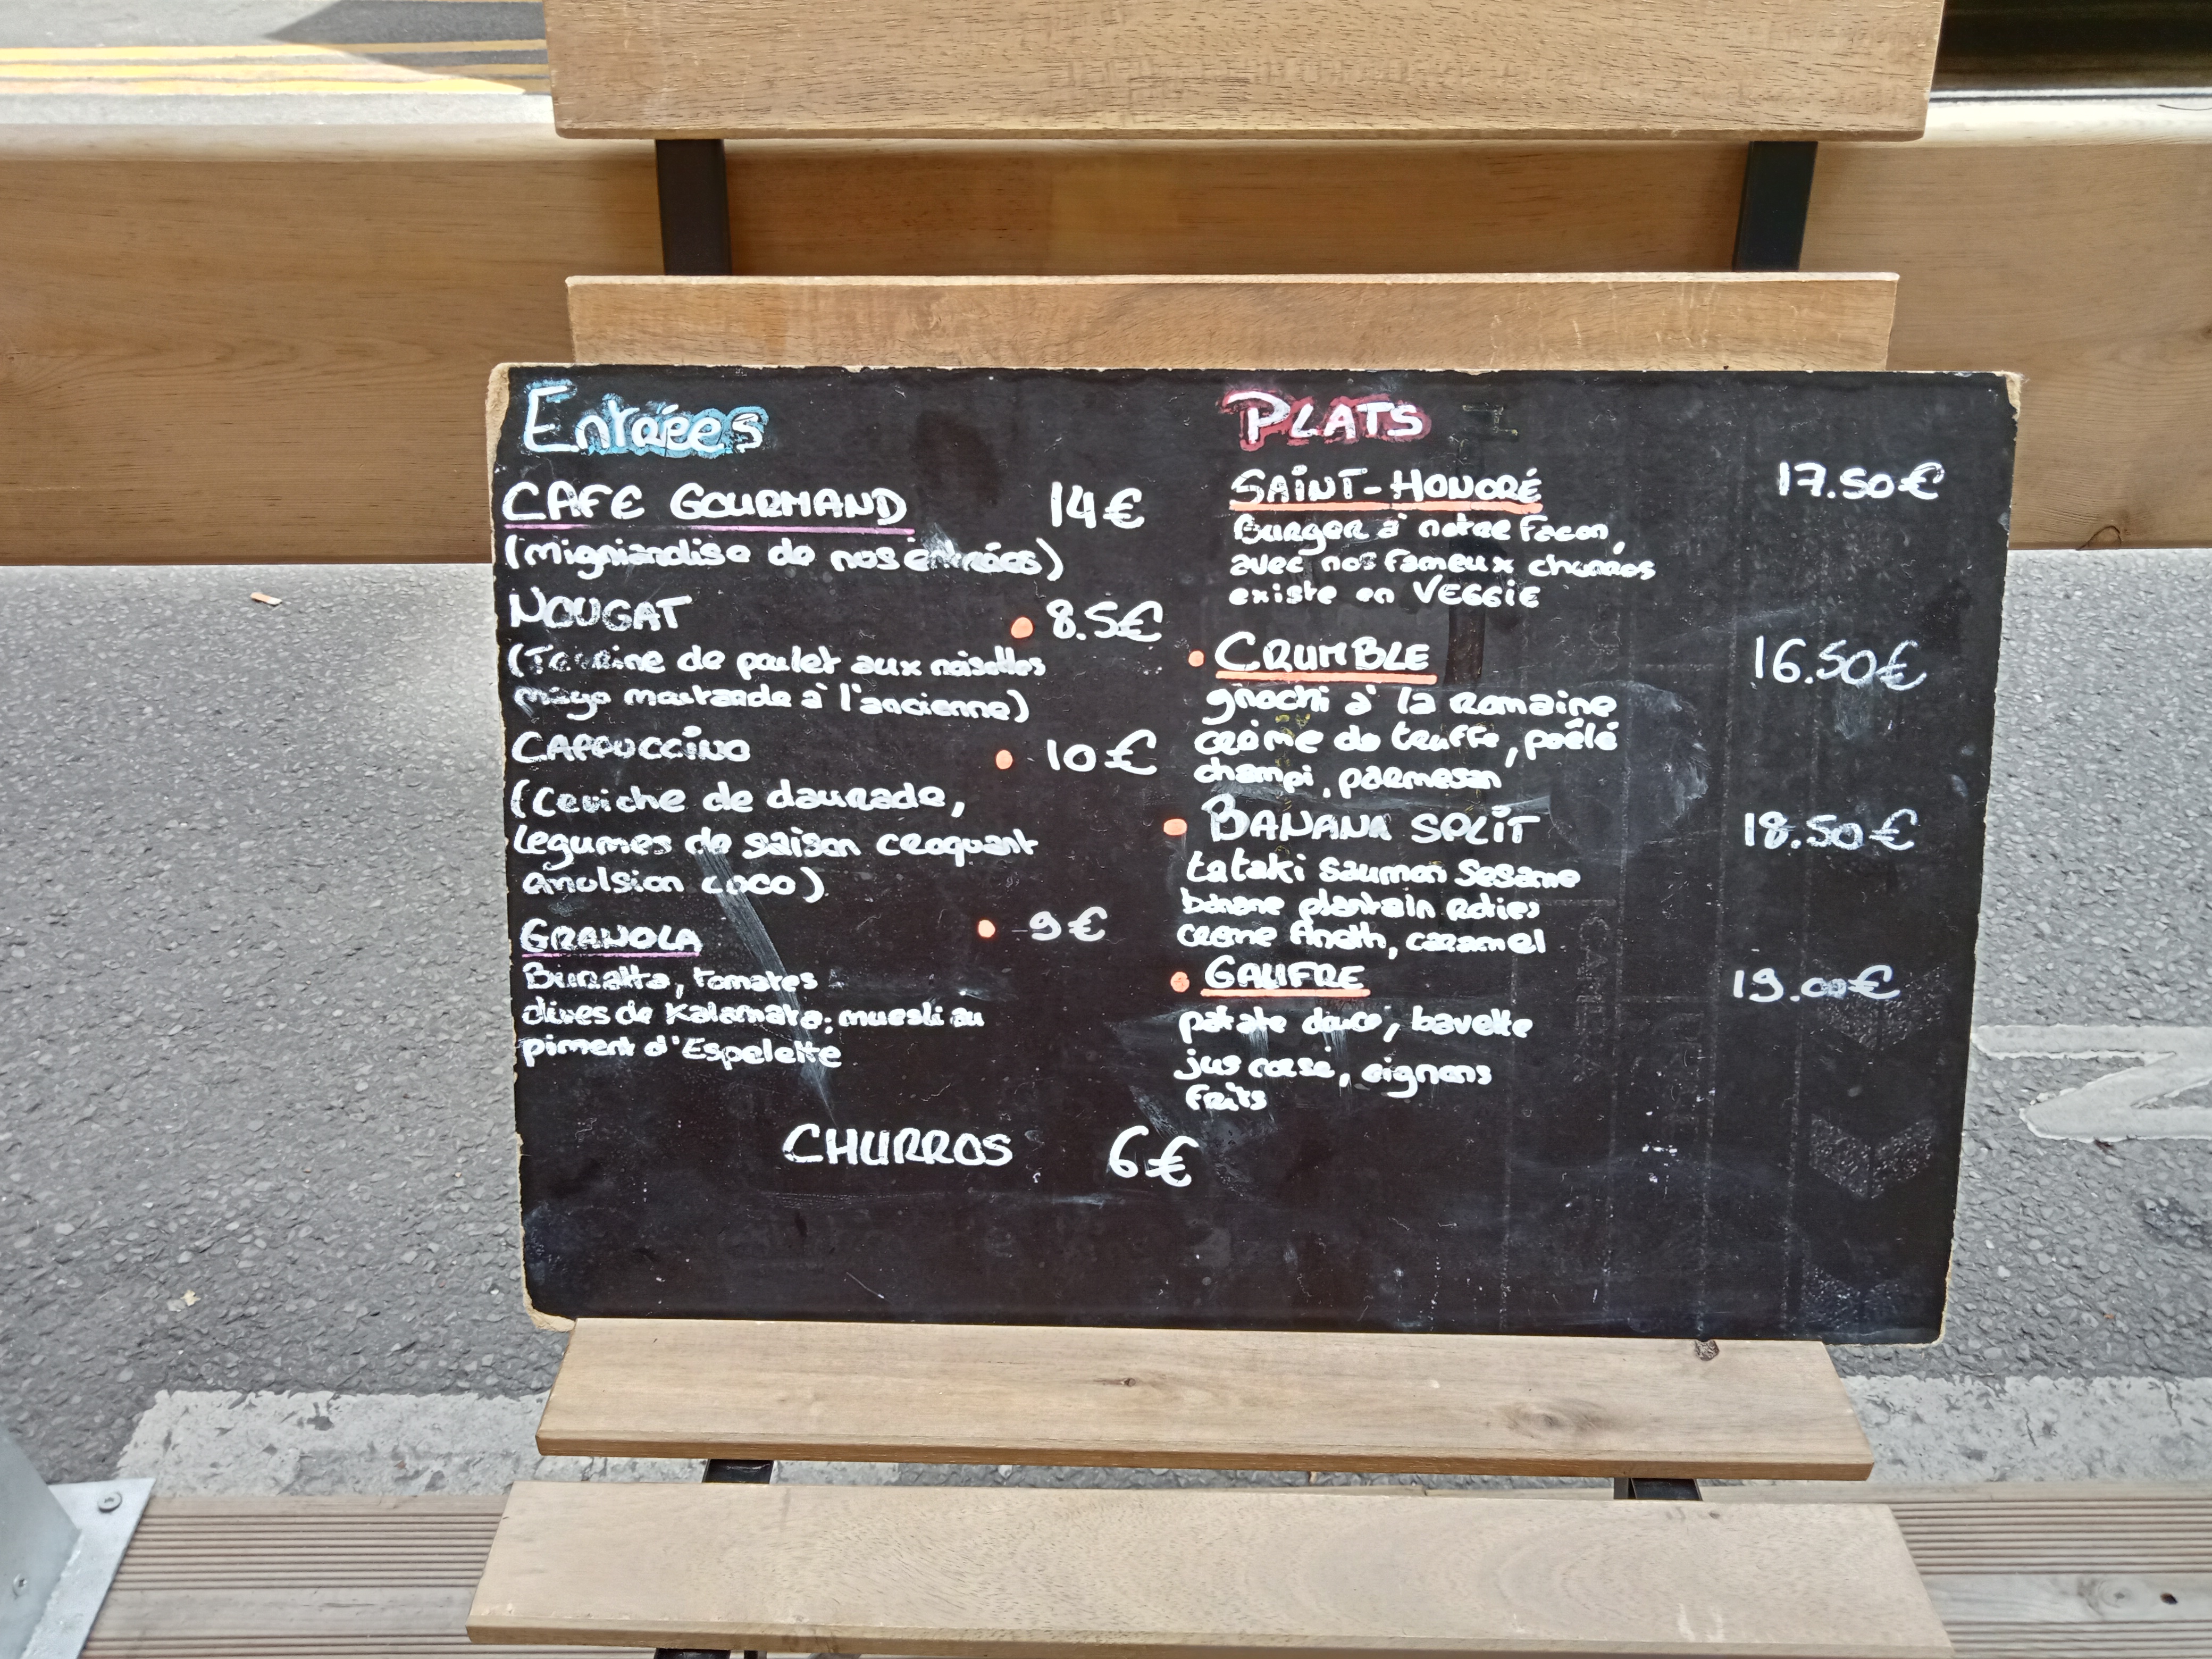 Entrées
CAFE GOURMAND 14€
(migniandise de nos entrées)
NOUGAT 8.5€
(Terrine de poulet aux noisettes
mayo moutarde à l'ancienne)
CAPPUCCINO 10€
(Ceviche de daurade,
legumes de saison croquant
emulsion coco)
GRANOLA 9€
Burratta, tomates
olives de Kalamata, muesli au
piment d'Espelette
PLATS
SAINT-HONORÉ 17.50€
Burger à notre Facon,
avec nos Fameux churros
existe en VEGGIE
CRUMBLE 16.50€
gnochi à la Romaine
crème de truffe, poêlé
champi, parmesan
BANANA SPLIT 18.50€
tataki Saumon Sesame
banane plantain roties
creme Aneth, caramel
GAUFRE 19.00€
patate douce, bavette
jus corsé, oignons
frits
CHURROS 6€